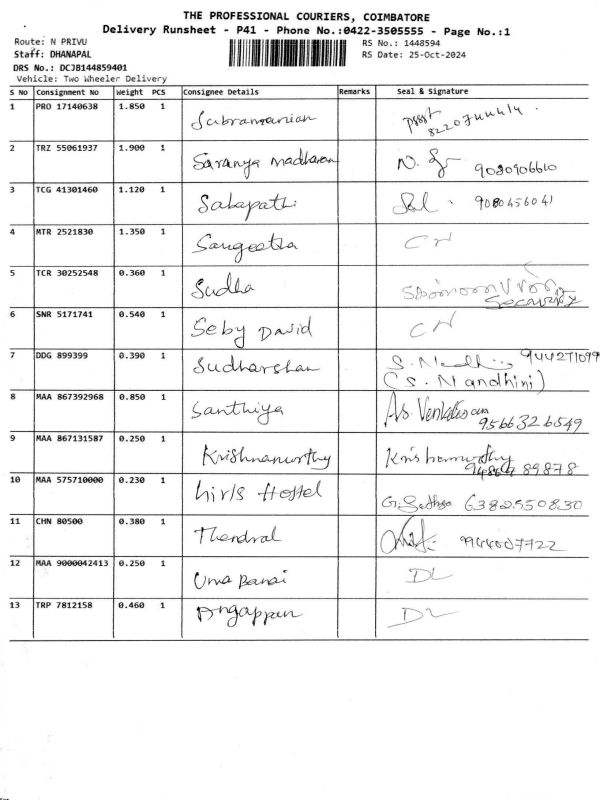 THE PROFESSIONAL COURIERS, COIMBATORE
Delivery Runsheet - P41 - Phone No.:0422-3505555 - Page No.:1
Route: N PRIVU RS No.: 1448594
Staff: DHANAPAL RS Date: 25-Oct-2024
DRS No.: DCJB144859401
Vehicle: Two Wheeler Delivery
S No Consignment No Weight PCS Consignee Details Remarks Seal & Signature
1 PRO 17140638 1.850 1 Subramanian
2 TRZ 55061937 1.900 1 Saranya madhavan
3 TCG 41301460 1.120 1 Sabapathi 9080456041
4 MTR 2521830 1.350 1 Sangeetha
5 TCR 30252548 0.360 1 Sudha
Security
6 SNR 5171741 0.540 1 Seby David
7 DDG 899399 0.390 1 Sudharshan 944271099
(S. Nandhini)
8 MAA 867392968 0.850 1 Santhiya
9566326549
9 MAA 867131587 0.250 1 Krishnamurthy
10 MAA 575710000 0.230 1 Hostel 6382550830
11 CHN 80500 0.380 1 Thendral
12 MAA 9000042413 0.250 1 Uma DL
13 TRP 7812158 0.460 1 Angappan DL